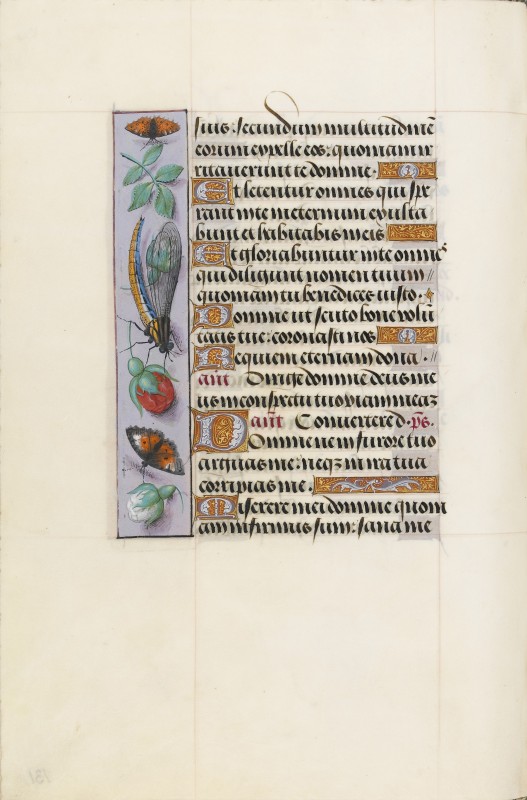 suis. secundum multitudinē
eorum expelle eos: quoniam ir
ritaverunt te domine.
Et letentur omnes qui spe
rant in te in eternum exulta
bunt et habitabis in eis
Et gloriabuntur in te omnes
qui diligunt nomen tuum //
quoniam tu benedices iusto.
Domine ut scuto bone volū
tatis tue: coronasti nos
Requiem eternam dona. //
añt Dirige domine deus me
us in conspectu tuo viam meaʒ
añt Convertere d. ps.
Domine ne in furore tuo
arguas me: neqʒ in ira tua
corripias me.
Miserere mei domine quoni
am infirmus sum: sana me